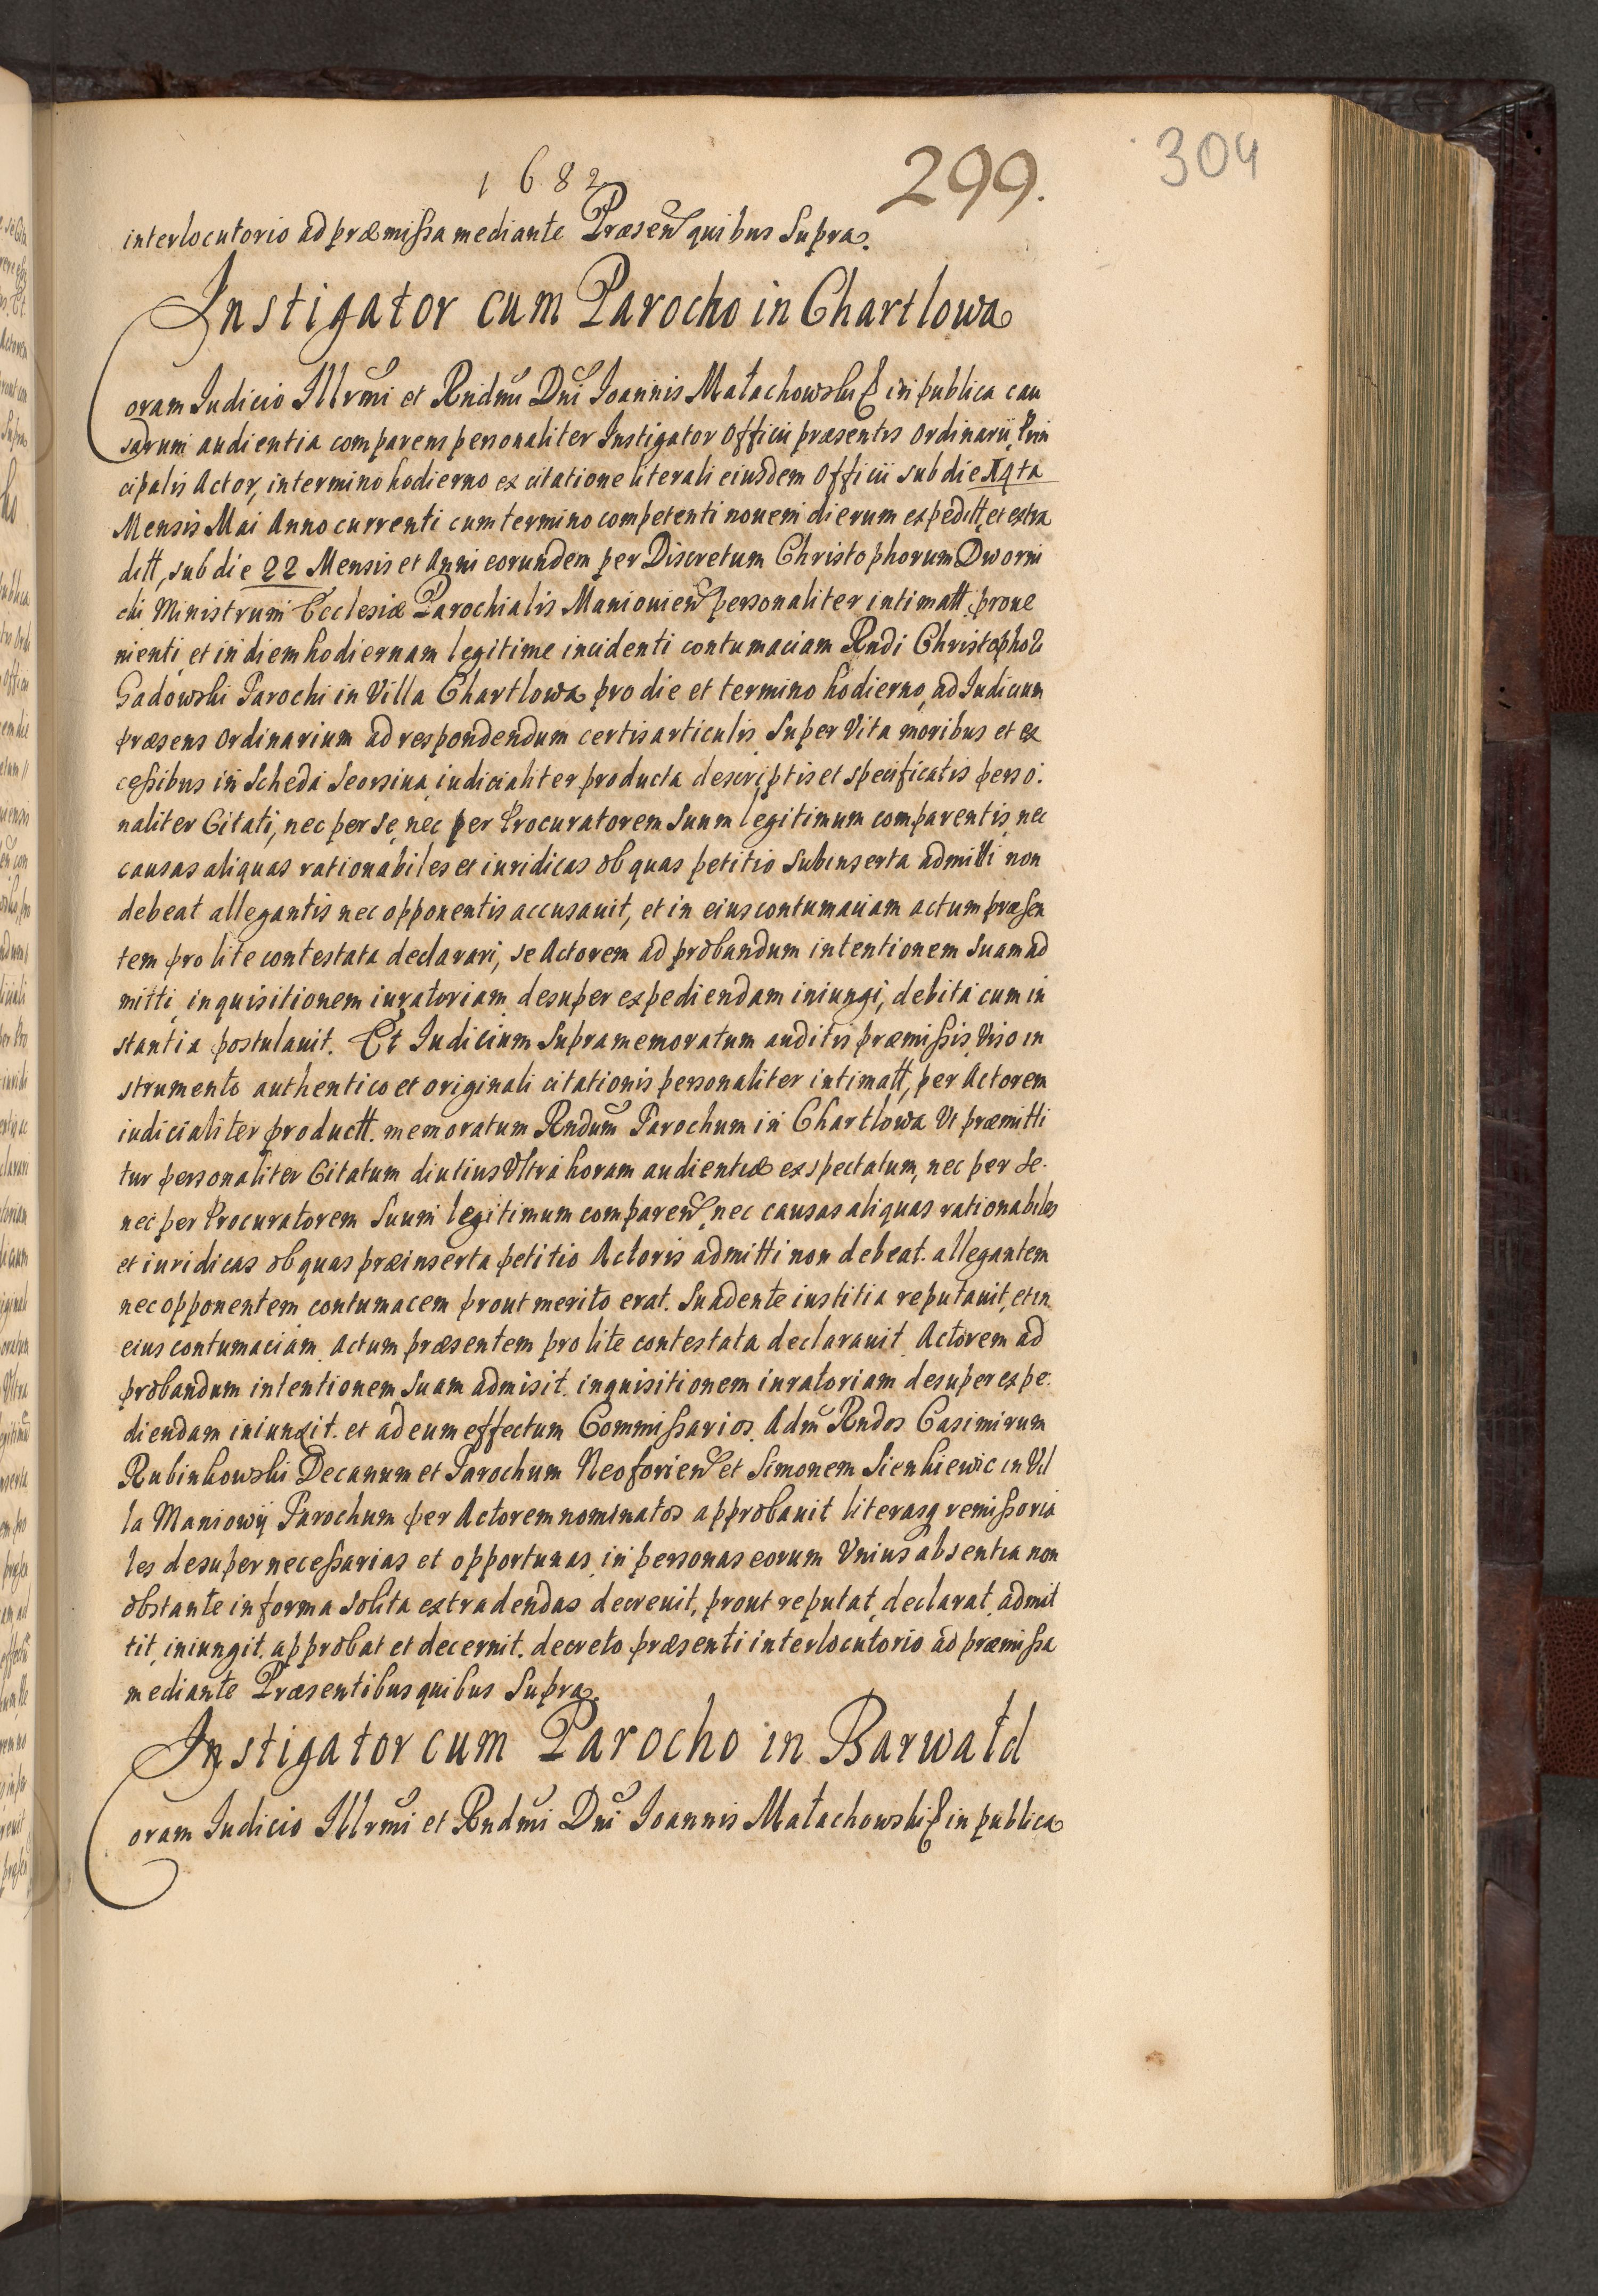 304
1682
299.
interlocutorio ad præmissa mediante Præsen quibus Supra.
Instigator cum Parocho in Chartlowa
Coram Iudicio Illrmi et Rndmi Dni Ioannis Małachowski in publica cau
sarum audientia comparens personaliter Instigator Officii præsentis Ordinarii, Prin
cipalis Actor, in termino hodierno ex citatione literali eiusdem Officii sub die 14ta
Mensis Mai Anno currenti cum termino competenti nouem dierum expeditt, et extra
ditt, sub die 22 Mensis et Anni eorundem per Discretum Christophorum Dworni
cki Ministrum Ecclesiæ Parochialis Maniouien personaliter intimatt, proue
nienti, et in diem hodiernam legitime incidenti contumaciam Rndi Christophori
Gadowski Parochi in Villa Chartlowa pro die et termino hodierno, ad Iudicium
præsens Ordinarium ad respondendum certis articulis Super Vita moribus et ex
cessibus in Scheda Seorsiua iudicialiter producta descriptis et specificatis perso:
naliter Citati, nec per se, nec per Procuratorem Suum legitimum comparentis, nec
causas aliquas rationabiles et iuridicas ob quas petitio Subinserta admitti non
debeat allegantis nec opponentis accusauit, et in eius contumaciam actum præsen
tem pro lite contestata declarari, se Actorem ad probandum intentionem Suam ad
mitti, inquisitionem iuratoriam desuper expediendam iniungi, debita cum in
stantia postulauit. Et Iudicium Supramemoratum auditis præmissis, Viso in
strumento authentico et originali citationis personaliter intimatt, per Actorem
iudicialiter productt. memoratum Rndum Parochum in Chartlowa Ut præmitti
tur personaliter Citatum diutius Ultra horam audientiæ exspectatum, nec per se.
nec per Procuratorem Suum legitimum comparen, nec causas aliquas rationabiles
et iuridicas ob quas præinserta petitio Actoris admitti non debeat. allegantem
nec opponentem contumacem prout merito erat. Suadente iustitia reputauit, et in
eius contumaciam Actum præsentem pro lite contestata declarauit Actorem ad
probandum intentionem Suam admisit. inquisitionem iuratoriam desuper expe:
diendam iniunxit. et ad eum effectum Commissarios. Adm Rndos Casimirum
Rubinkowski Decanum et Parochum Neoforien et Simonem Sienkiewic in Vil
la Maniowÿ Parochum per Actorem nominatos approbauit literasq remissoria
les desuper necessarias et opportunas, in personas eorum Unius absentia non
obstante in forma solita extradendas decreuit, prout reputat, declarat, admit
tit, iniungit. approbat et decernit. decreto præsenti interlocutorio ad præmissa
mediante Præsentibus quibus Supra.
Instigator cum Parocho in Barwałd
Coram Iudicio Illrmi et Rndmi Dni Ioannis Małachowski in publica